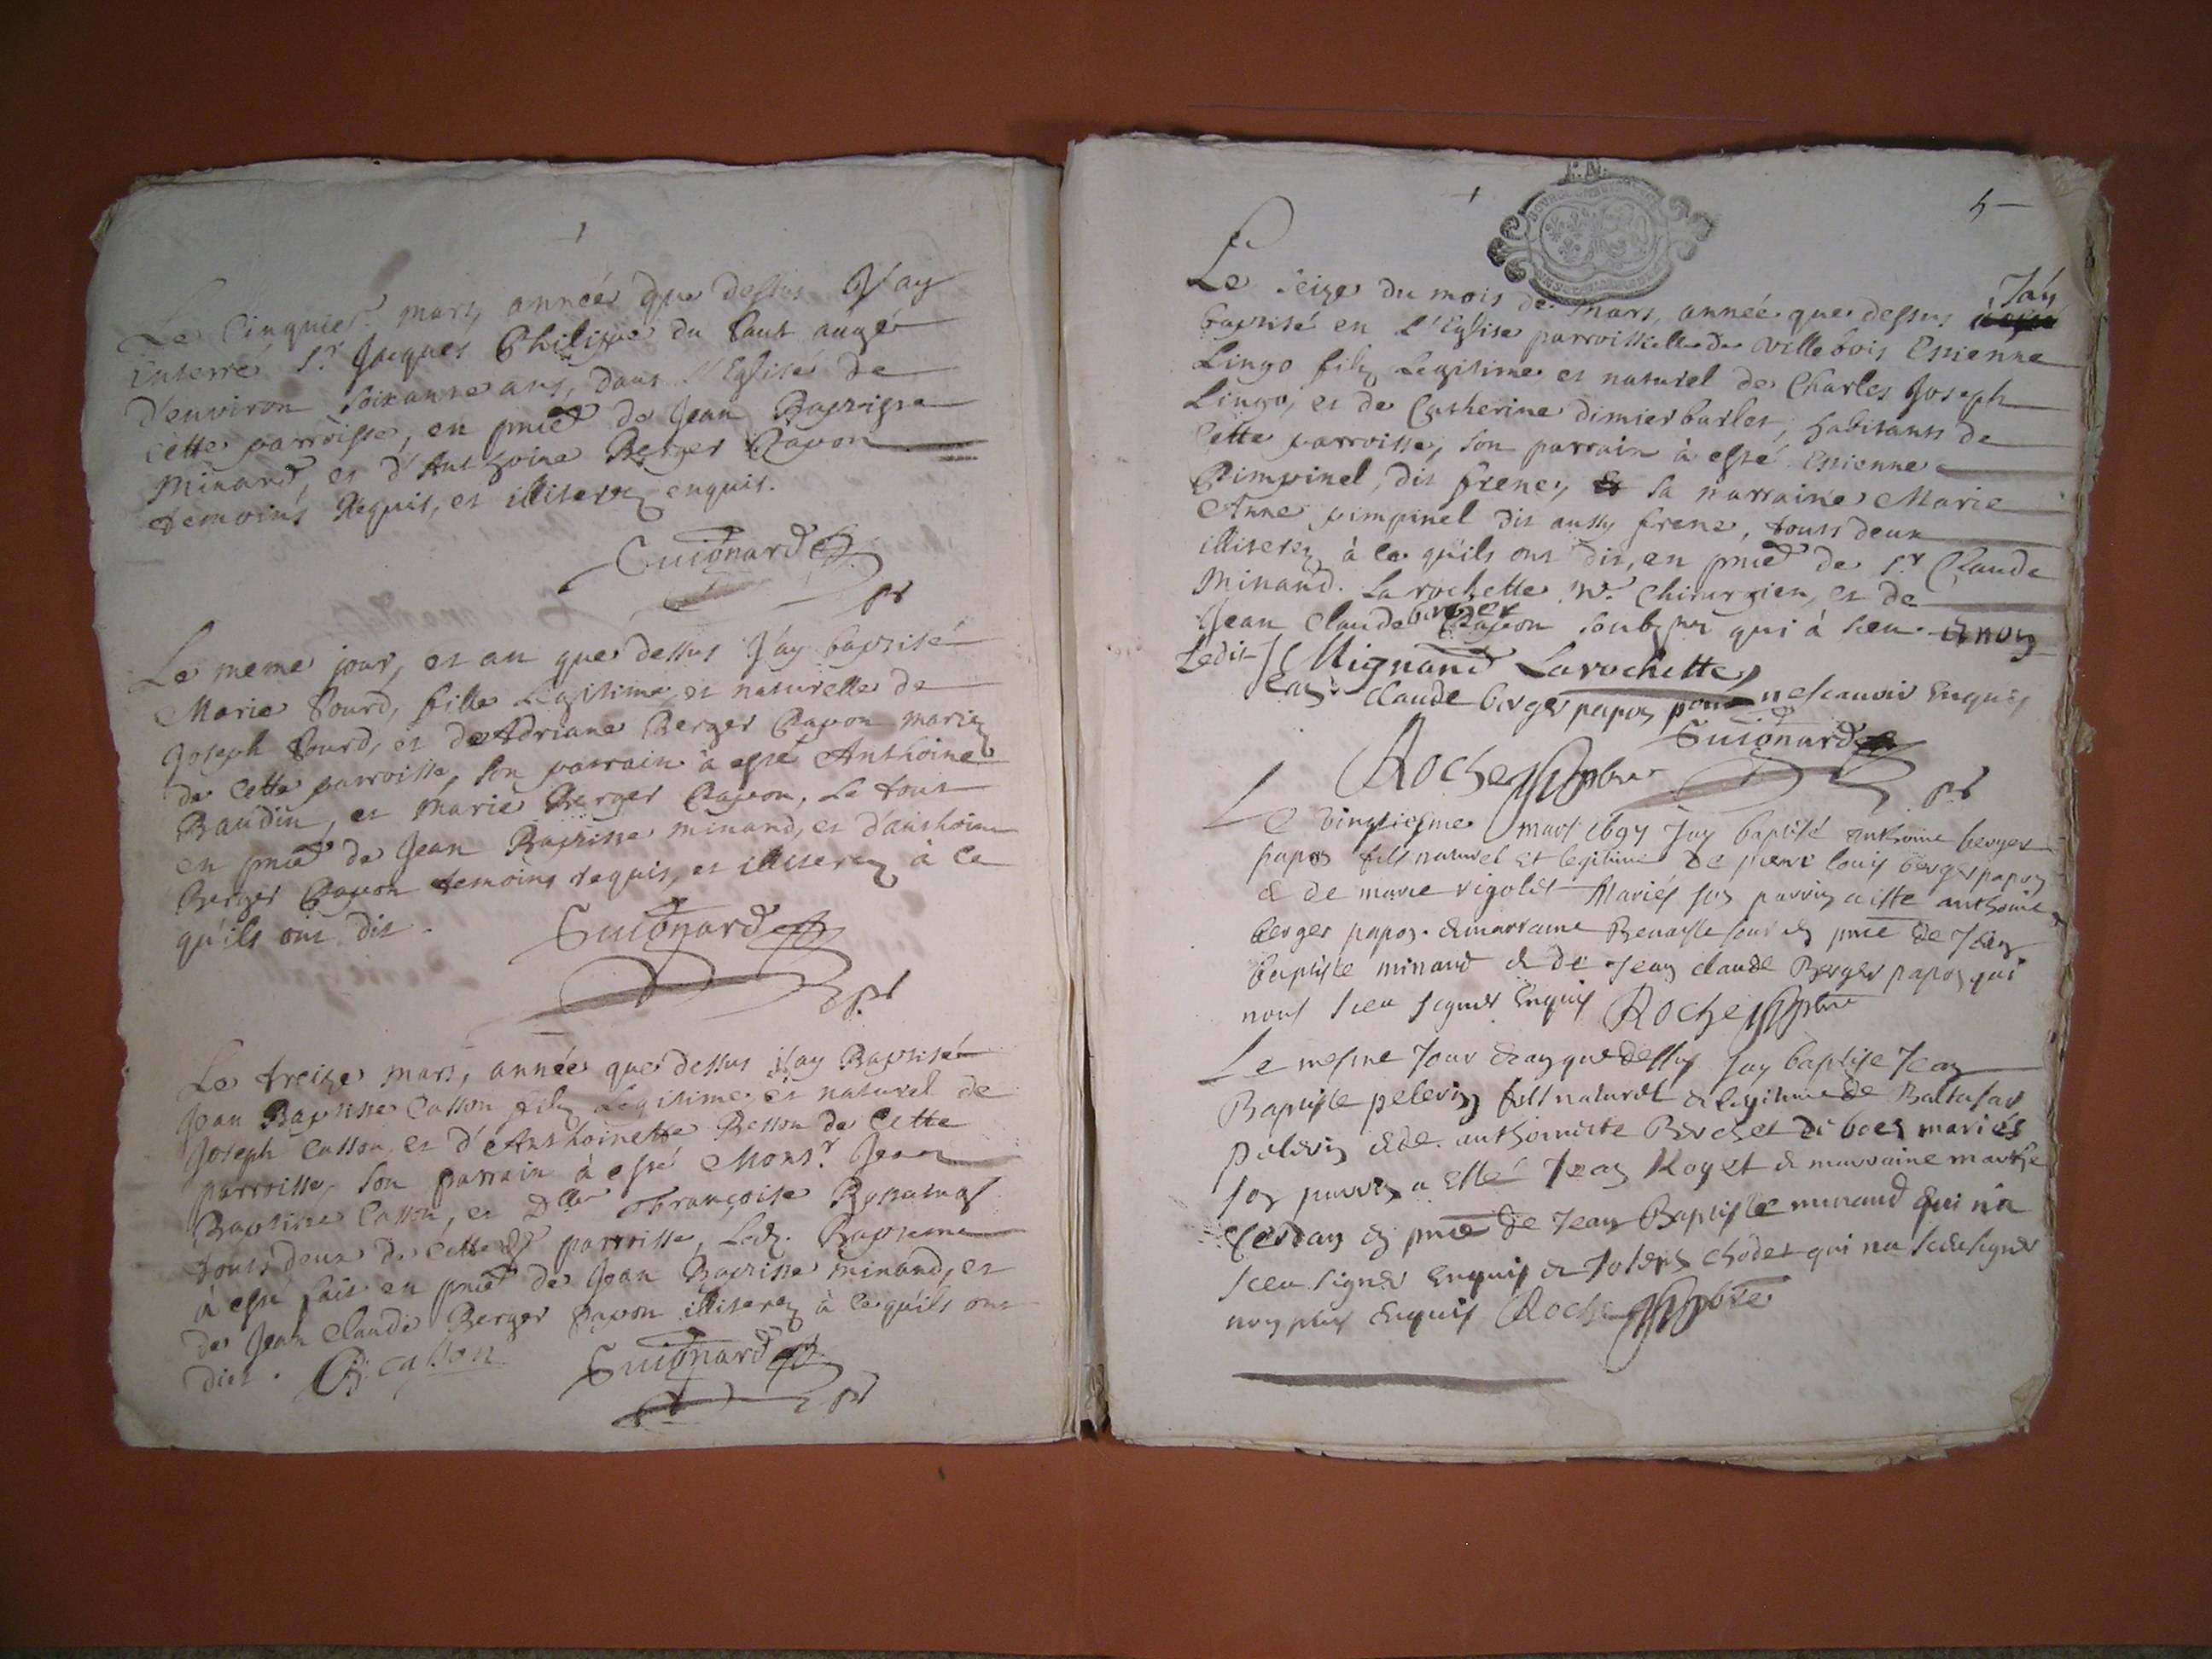 Le Cinquie.^e mars, année que dessus J'ay
Enterré S.^r Jacques Philippe du Saut augé
d'environ soixante ans, dans l'Eglise de
Cette parroisse, en pnce de Jean Baptiste
Minand, et d'Anthoine Berger Papon
temoins Requis, et illiterez enquis.
Guignard
ptr
Le meme jour, et an que dessus J'ay baptisé
Marie Sourd, fille Legitime, et naturelle de
Joseph Sourd, et de Adriane Berger Papon mariez
de Cette parroisse, son parrain à esté Anthoine
Baudin, et Marie Berger Papon, Le tout
en pnce de Jean Baptiste minand, et d'anthoine
Berger Papon temoins requis, et illiterez à ce
qu'ils ont dit.
Guignard
ptr
Le treize mars, année que dessus J'ay Baptisé
Jean Baptiste Casson filz Legitime, et naturel de
Joseph Casson, et d'Anthoinette Besson de Cette
parroisse, son parrain à esté Mons.^r Jean
Baptiste Casson, et Dlle Françoise
tous deux de Cette parroisse, Led. Baptesme
à esté fait en pnce de Jean Baptiste minand, et
de Jean Claude Berger Papon illiterez à ce qu'ils ont
dict. casson
Guignard
ptr
5
Le seize du mois de Mars, année que dessus J'ay
baptisé en L'Eglise parroissielle de Villebois Estienne
Lingo filz Legitime et naturel de Charles Joseph
Lingo, et de Catherine dimier barlet, habitants de
Cette parroisse, son parrain à esté Estienne
Pimpinel, dit frene, sa marraine Marie
Anne pimpinel dit aussy frene, touts deux
illiterez à ce qu'ils ont dit, en pnce de S.^r Claude
Minand. La rochette M.^e Chirurgien, et de
Jean Claude berger Papon soubz.nez qui à sceu. et non
Ledit
Mignand Larochette
Jean claude berger papon pour ne scauoir Enquis
Guignard
Roche ptre
ptr
Le vingtiesme mars 1697 Jay baptisé anthoine berger
papon fils naturel et legitime de pierre louis berger papon
& de marie rigolet Mariés son parrin a esté anthoine
berger papon. & marraine Benoiste sourd en pnce de Jean
baptiste minand & de Jean claude Berger papon qui
nont sceu signer Enquis Roche ptre
Le mesme Jour & an que dessus Jay baptise Jean
Baptiste pelerin fils naturel & legitime de Baltasar
pelerin & de anthoinette Berchet de boes mariés
son parrin a esté Jean Royet & marraine marthe
en pnce de Jean Baptiste minand qui na
sceu signer Enquis & Joseph chodet qui na sceu signer
non plus Enquis Roche ptre